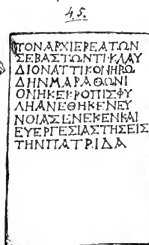 45.
ΤΟΝΑΡΧΙΕΡΕΑΤΩΝ
ΣΕΒΑΣΤΩΝΤΙΚΛΑΥ
ΔΙΟΝΑΤΤΙΚΟΝΗΡΩ
ΔΗΝΜΑΡΑΘΩΝΙ
ΟΝΗΚΕΚΡΟΠΙΣΦΥ
ΛΗΑΝΕΘΗΚΕΝΕΥ
ΝΟΙΑΣΕΝΕΚΕΝΚΑΙ
ΕΥΕΡΓΕΣΙΑΣΤΗΣΕΙΣ
ΤΗΝΠΑΤΡΙΔΑ